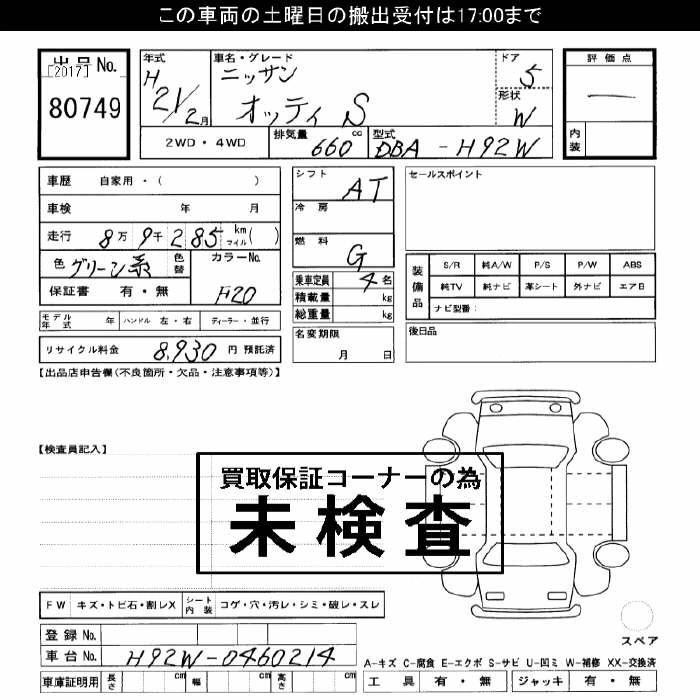 この車両の土曜日の搬出受付は17:00まで
出品No.
[2017]
80749
年式
H
21/2月
車名・グレード
ニッサン
オッティ S
ドア
5
形状
W
評価点
―
内装
2WD・4WD
排気量
660 cc
型式
DBA-H92W
車歴 自家用・( )
車検 年 月
走行 8万 9千 285 km マイル ( )
色 グリーン系 色替 カラーNo.
F20
保証書 有・無
モデル年式 年 ハンドル 左・右 ディーラー・並行
リサイクル料金 8,930 円 預託済
シフト
AT
冷房
燃料
G
乗車定員 4名
積載量 kg
総重量 kg
名変期限
月 日
セールスポイント
装備品
S/R 純A/W P/S P/W ABS
純TV 純ナビ 革シート 外ナビ エアB
ナビ型番:
後日品
【出品店申告欄(不良箇所・欠品・注意事項等)】
【検査員記入】
買取保証コーナーの為
未検査
FW キズ・トビ石・割レX シート内装 コゲ・穴・汚レ・シミ・破レ・スレ
登録No.
車台No. H92W-0460214
車庫証明用 長さ cm 幅 cm 高さ cm
スペア
A-キズ C-腐食 E-エクボ S-サビ U-凹ミ W-補修 XX-交換済
工具 有・無 ジャッキ 有・無